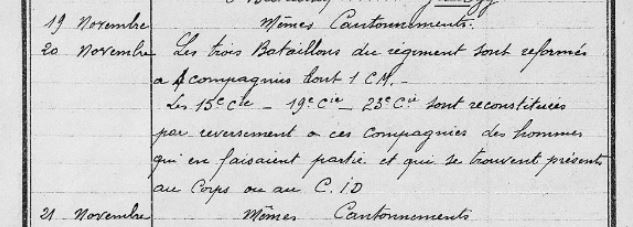 19 Novembre Mêmes Cantonnements.
20 Novembre Les trois Bataillons du régiment sont reformés
a 4 compagnies dont 1 CM.-
Les 15e Cie - 19e Cie - 23e Cie sont reconstituées
par reversement a ces compagnies des hommes
qui en faisaient partie et qui se trouvent présents
au Corps ou au C.ID
21 Novembre Mêmes Cantonnements